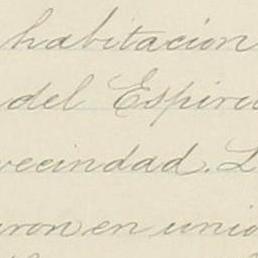 habitación
del Espíri
vecindad. L
aron en unio